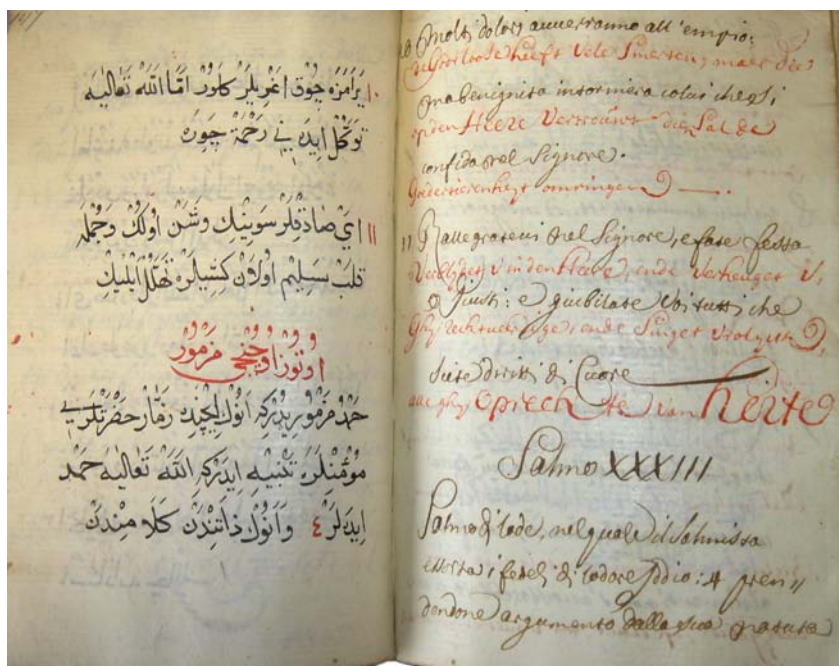 ١٠ يرامزه چوق اغريلر كلور امّا الله تعاليه
توكّل ايدنى رحمة چوره
١١ اى صادقلر سوينيك وشن اولك وجمله
قلب سليم اولان كشيلره تهلّل ايلنيك
اوتوز اوچنجى مزمور
حمد مزموريدركه انوك ايچينك زمّار حضرتلرى
مؤمنلره تنبيه ايدركه الله تعاليه حمد
ايدلر ٤ وانوك ذاتندن كلامندن
10 Molti dolori auuerranno all'empio:
heeft vele Smerten, maer die
ma benignita intornierà colui che si
op den Heere Vertrouwt dien Sal de
confida nel Signore.
Goedertierenheyt omringen
11 Rallegrateui nel Signore, e fate festa
Verblydet V in den Heere, ende Verheuget V,
o Giusti: e giubilate Voi tutti che
Ghy rechtveerdige, ende Singet Vrolyck,
siete dritti di Cuore
alle ghy Oprechte van Herte
Salmo XXXIII
Salmo di lode, nel quale il Salmista
essorta i fedeli di lodare Iddio: 4 pren,,
dendone argumento dalla sua